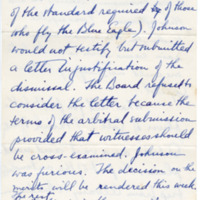 of the standard required by of those
who fly the Blue Eagle). Johnson
would not testify but submitted
a letter in justification of the
dismissal. The Board refused to
consider the letter because the
terms of the arbitral submission
provided that witnesses should
be cross-examined. Johnson
was furious. The decision on the
merits will be rendered this week.
The rest